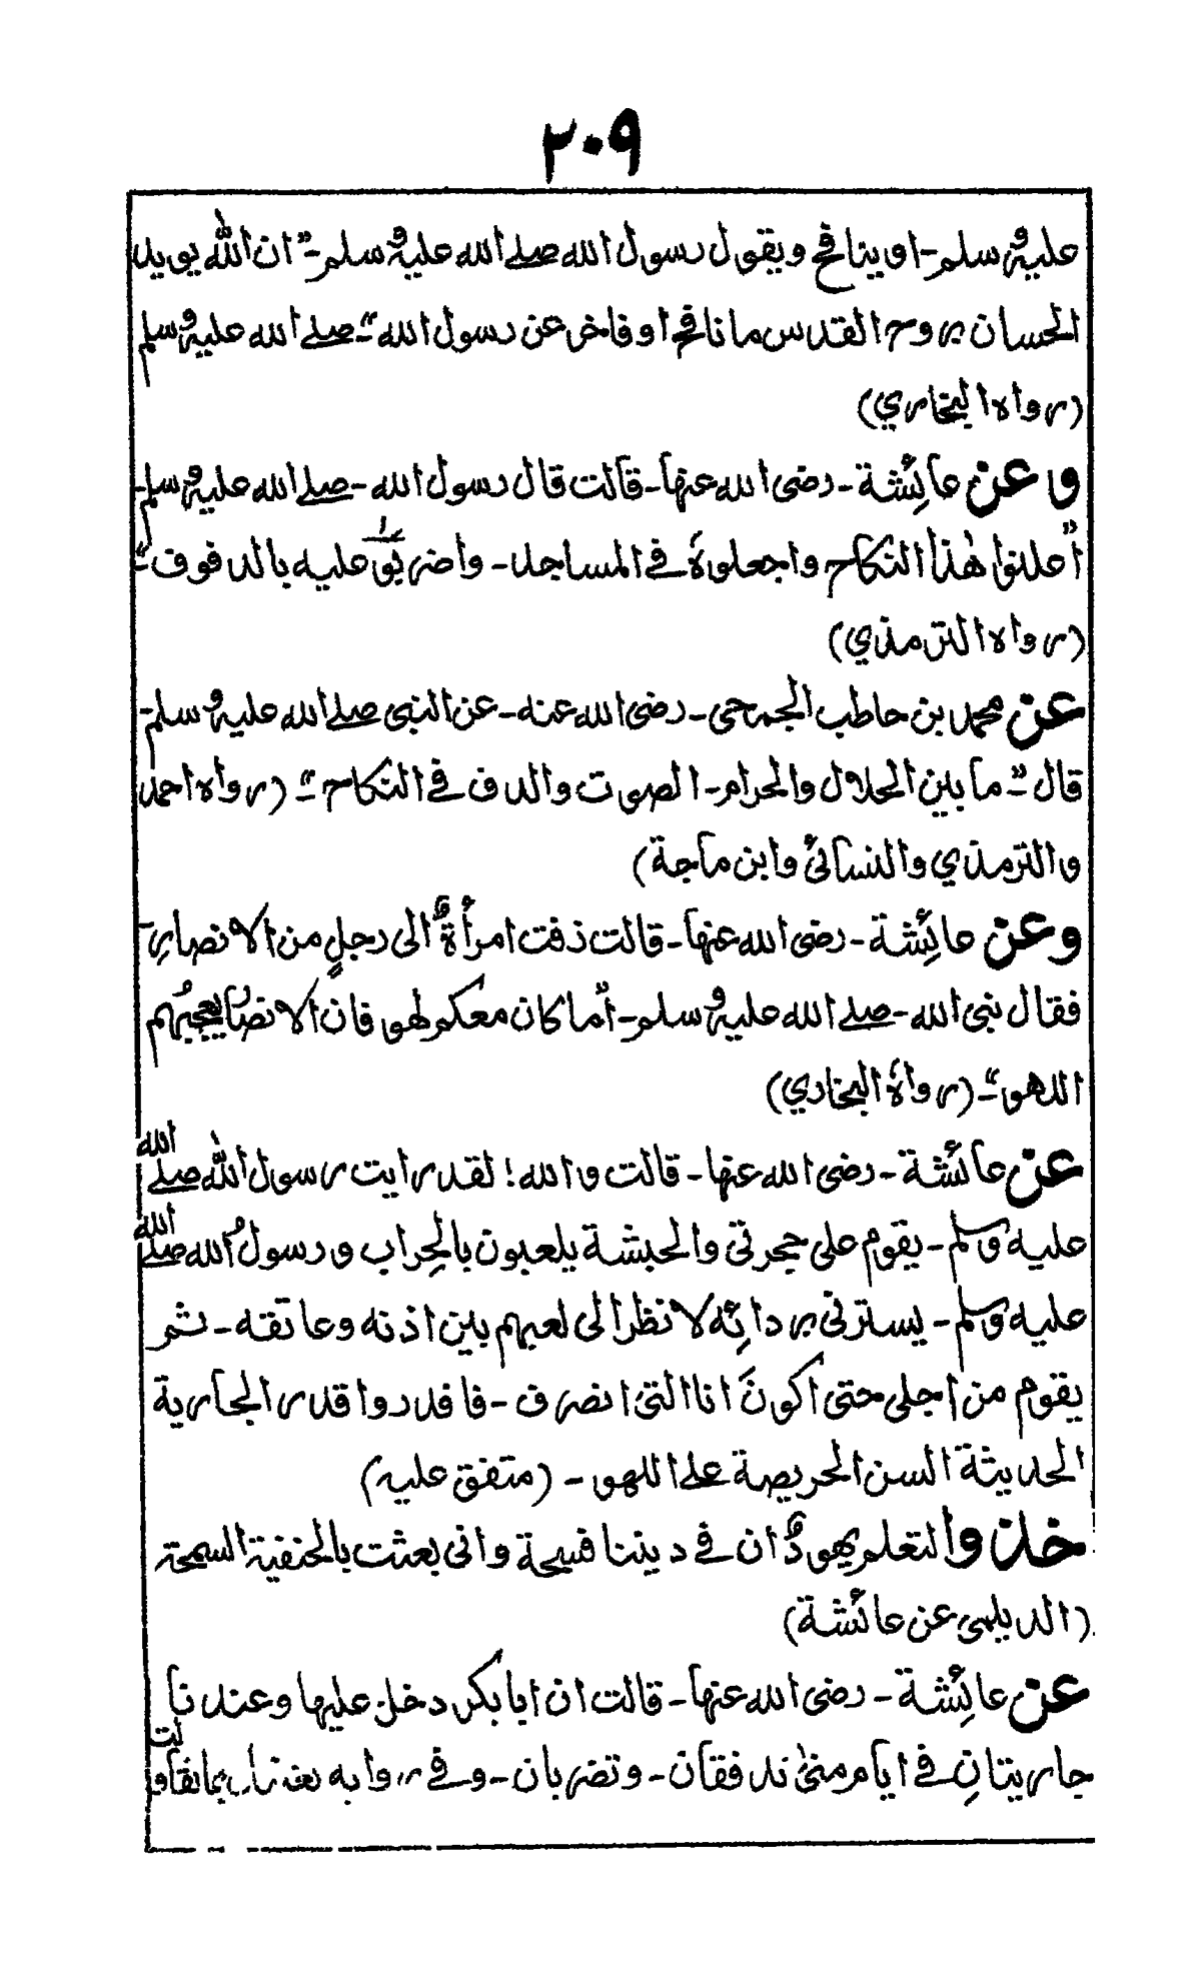 ٢٠٩
عليه وسلم - او ينافح ويقول رسول الله صلے الله عليه وسلم - "ان الله يويد
الحسان بروح القدس ما نافح او فاخر عن رسول الله" - صلے الله عليه وسلم
(رواه البخاري)
وعن عائِشة - رضى الله عنها - قالت قال رسول الله - صلے الله عليه وسلم -
"اعلنوا هٰذا النكاح واجعلوهُ فے المساجد - واضربوا عليه بالدفوف" -
(رواه الترمذي)
عن محمد بن حاطب الجمحى - رضى الله عنه - عن النبى صلے الله عليه وسلم -
قال - "ما بين الحلال والحرام - الصوت والدف فے النكاح" - (رواه احمد
والترمذي والنسائى وابن ماجة)
وعن عائِشة - رضى الله عنها - قالت زفت امرأةٌ الى رجلٍ من الانصارِ -
فقال نبى الله - صلے الله عليه وسلم - "أما كان معكم لهو فان الانصار يعجبهم
اللهو" - (رواهُ البخاري)
عن عائشة - رضى الله عنها - قالت والله! لقد رايت رسول الله صلے الله
عليه وسلم - يقوم على حجرتى والحبشة يلعبون بالحِراب ورسولُ الله صلے الله
عليه وسلم - يسترنى بردائِه لا نظر الى لعبهم بين اذنه وعاتقه - ثم
يقوم من اجلى حتى اكونَ انا التى انصرف - فاقدروا قدر الجارية
الحديثة السن الحريصة على اللهو - (متفق عليه)
خذوا لتعلم يهودُ ان فے ديننا فسحة وانى بعثت بالحنفية السمحة
(الديلمى عن عائشة)
عن عائِشة - رضى الله عنها - قالت ان ابا بكر دخل عليها وعندنا
جاريتانِ فے ايام منىٰ تدففان - وتضربان - وفے رواية تغنيان بما تقاولت